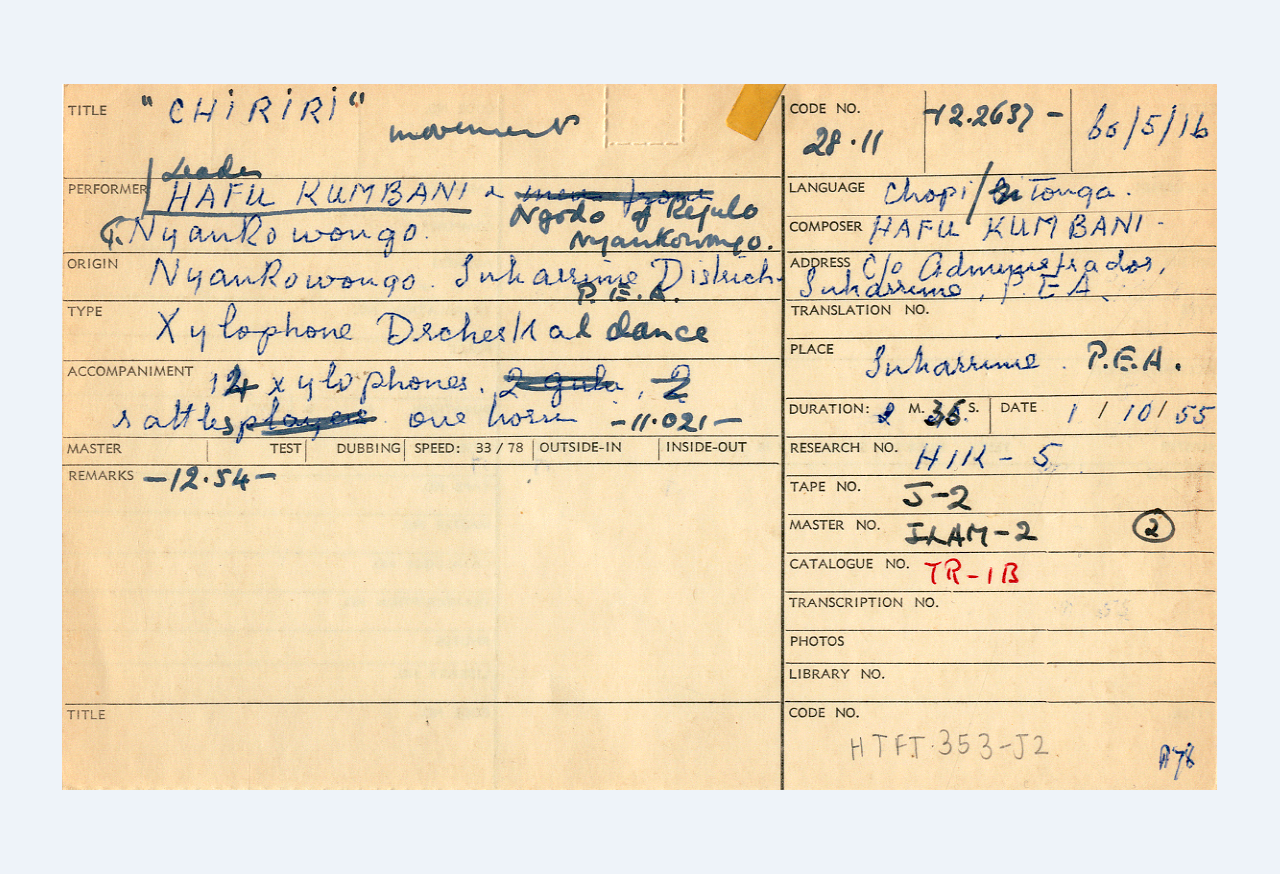 TITLE "CHiRiRi" movement
Leader
PERFORMER HAFU KUMBANI &
Ngodo of Regulo
Nyankowongo.
Nyankowongo.
ORIGIN Nyankowongo. Inharrime District
P.E.A.
TYPE Xylophone Orchestral dance
ACCOMPANIMENT 14 xylophones. 2 gula, 2
rattles players one horn -11.021-
MASTER TEST DUBBING SPEED: 33 / 78 OUTSIDE-IN INSIDE-OUT
REMARKS -12.54-
TITLE
CODE NO. 28.11 -12.2637- Bo/5/16
LANGUAGE Chopi/ Tonga.
COMPOSER HAFU KUMBANI-
ADDRESS C/o Administrador,
Inharrime, P.E.A.
TRANSLATION NO.
PLACE Inharrime. P.E.A.
DURATION: 2 M. S. DATE 1/10/55
RESEARCH NO. H1K-5
TAPE NO. J-2
MASTER NO. ILAM-2 2
CATALOGUE NO. TR-1B
TRANSCRIPTION NO.
PHOTOS
LIBRARY NO.
CODE NO.
HTFT.353-J2.
A78